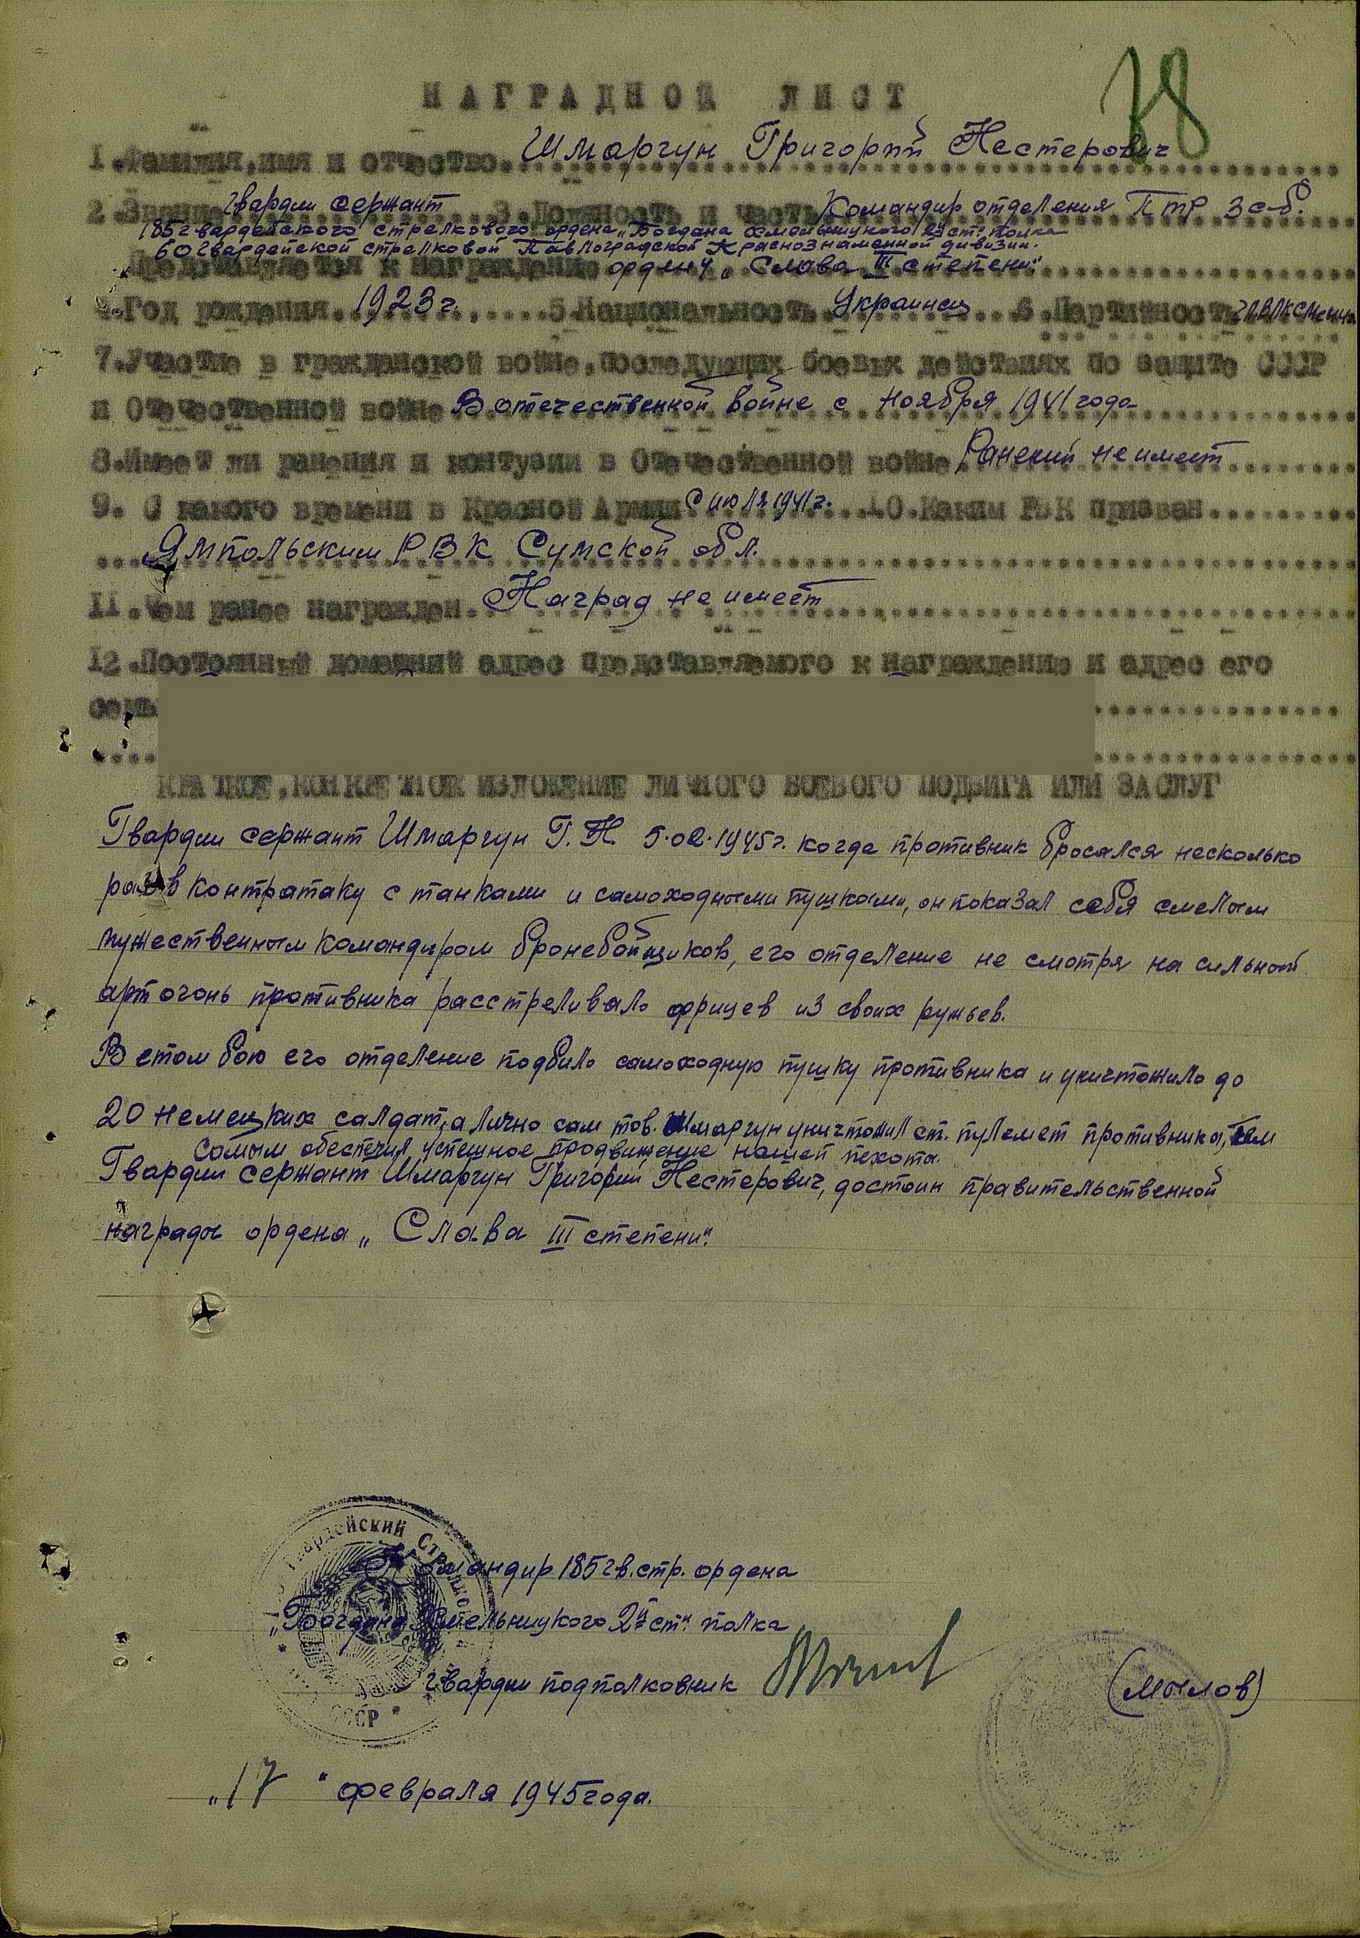 78
НАГРАДНОЙ ЛИСТ
1.Фамилия,имя и отчество. Шмаргун Григорий Нестерович
2.Звание гвардии сержант 3.Должность и часть Командир отделения ПТР 3 с-б.
185 гвардейского стрелкового ордена „Богдана Хмельницкого 2й ст." полка
60 гвардейской стрелковой Павлоградской Краснознаменной дивизии.
Представляется к награждению ордену „Слава III степени"
4.Год рождения. 1923 г. 5.Национальность Украинец 6.Партийность
7.Участие в гражданской войне,последующих боевых действиях по защите СССР
и Отечественной войне В отечественной войне с ноября 1941 года
8.Имеет ли ранения и контузии в Отечественной войне. Ранений не имеет
9. С какого времени в Красной Армии С июля 1941 г. 10.Каким РВК призван
Ямпольским РВК Сумской обл.
11.Чем ранее награжден. Наград не имеет
12.Постоянный домашний адрес представляемого к награждению и адрес его
семьи
КРАТКОЕ,КОНКРЕТНОЕ ИЗЛОЖЕНИЕ ЛИЧНОГО БОЕВОГО ПОДВИГА ИЛИ ЗАСЛУГ
Гвардии сержант Шмаргун Г.Н. 5.02.1945г. когда противник бросался несколько
раз в контратаку с танками и самоходными пушками, он показал себя смелым
мужественным командиром бронебойщиков, его отделение не смотря на сильной
артогонь противника расстреливало фрицев из своих ружьев.
В етом бою его отделение подбило самоходную пушку противника и уничтожило до
20 немецких салдат, а лично сам тов. Шмаргун уничтожил ст. пулемет противника, тем
самым обеспечил успешное продвижение нашей пехота.
Гвардии сержант Шмаргун Григорий Нестерович, достоин правительственной
награды ордена „Слава III степени".
Гвардейский Стрелко
Командир 185 гв. стр. ордена
„Богдана Хмельницкого 2й ст." полка
гвардии подполковник (Мылов)
СССР
„17" февраля 1945 года.